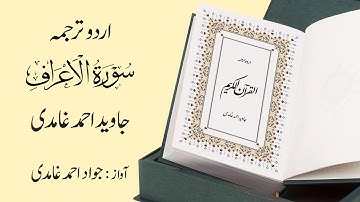 اردو ترجمہ
سُوْرَةُ الْاَعْرَافِ
جاوید احمد غامدی
آواز : جواد احمد غامدی
القرآن الکریم
جاوید احمد غامدی